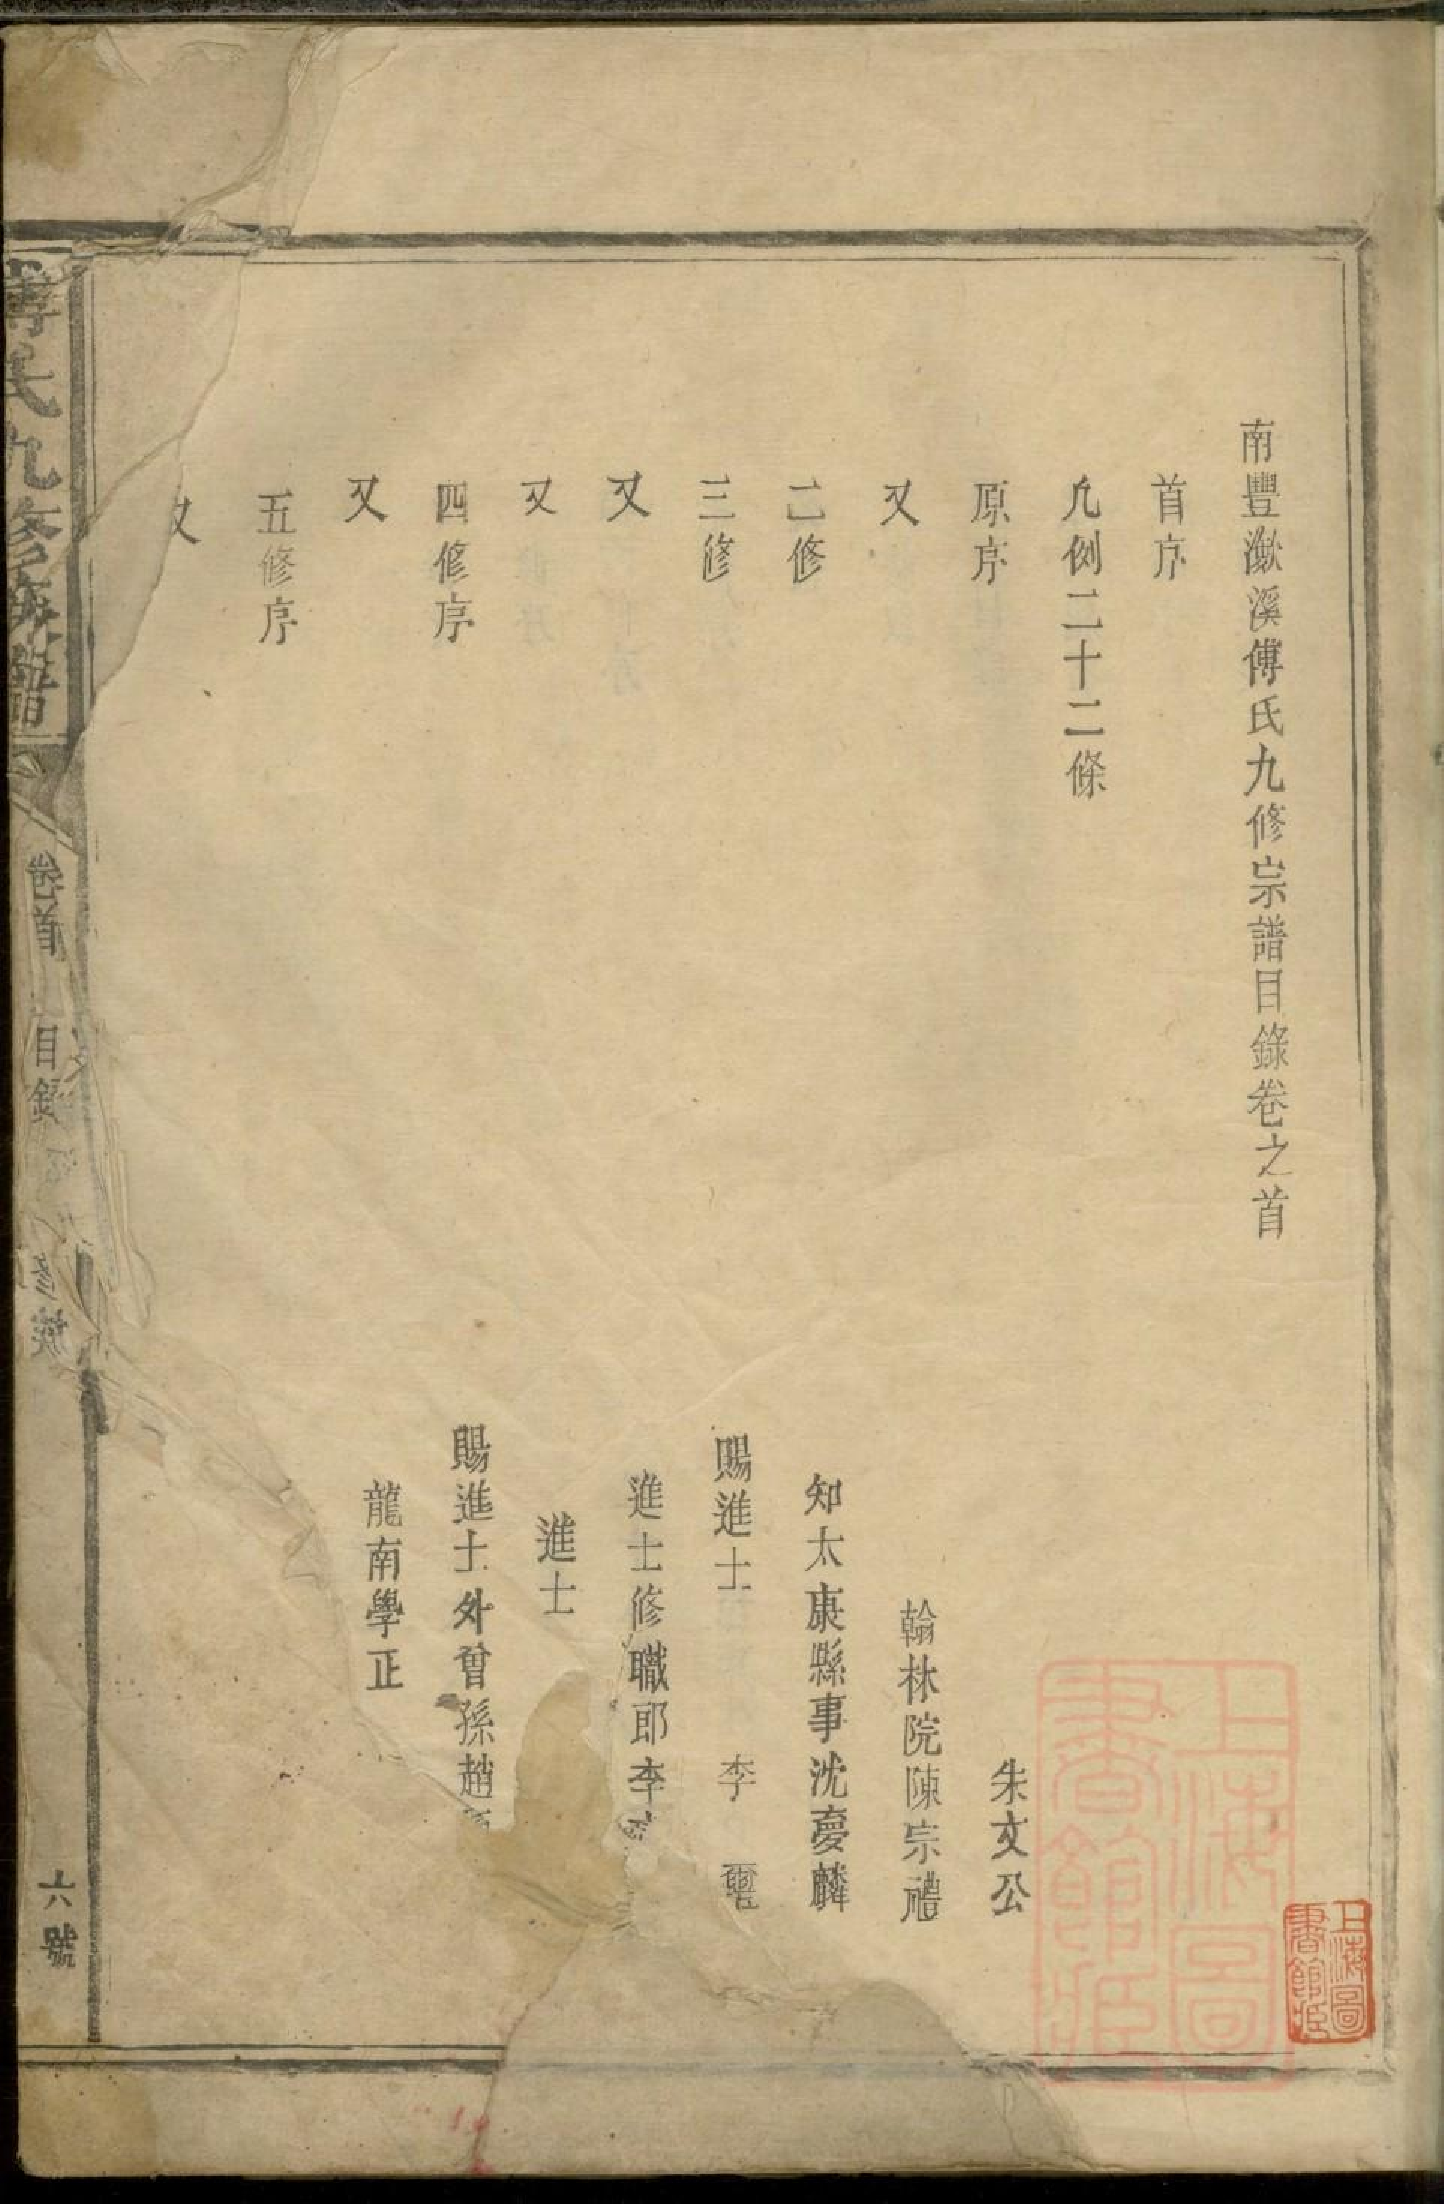 南豐潋溪傅氏九修宗譜目錄卷之首
首序
凡例二十二條
原序 朱文公
又 翰林院陳宗禮
二修 知太康縣事沈夢麟
三修 賜進士 李
又 進士修職郎李
又 進士
四修序 賜進士外曾孫趙
又 龍南學正
五修序
又
傅氏九修族譜
卷首
目錄
六號
上海圖書館藏
上海圖書館藏